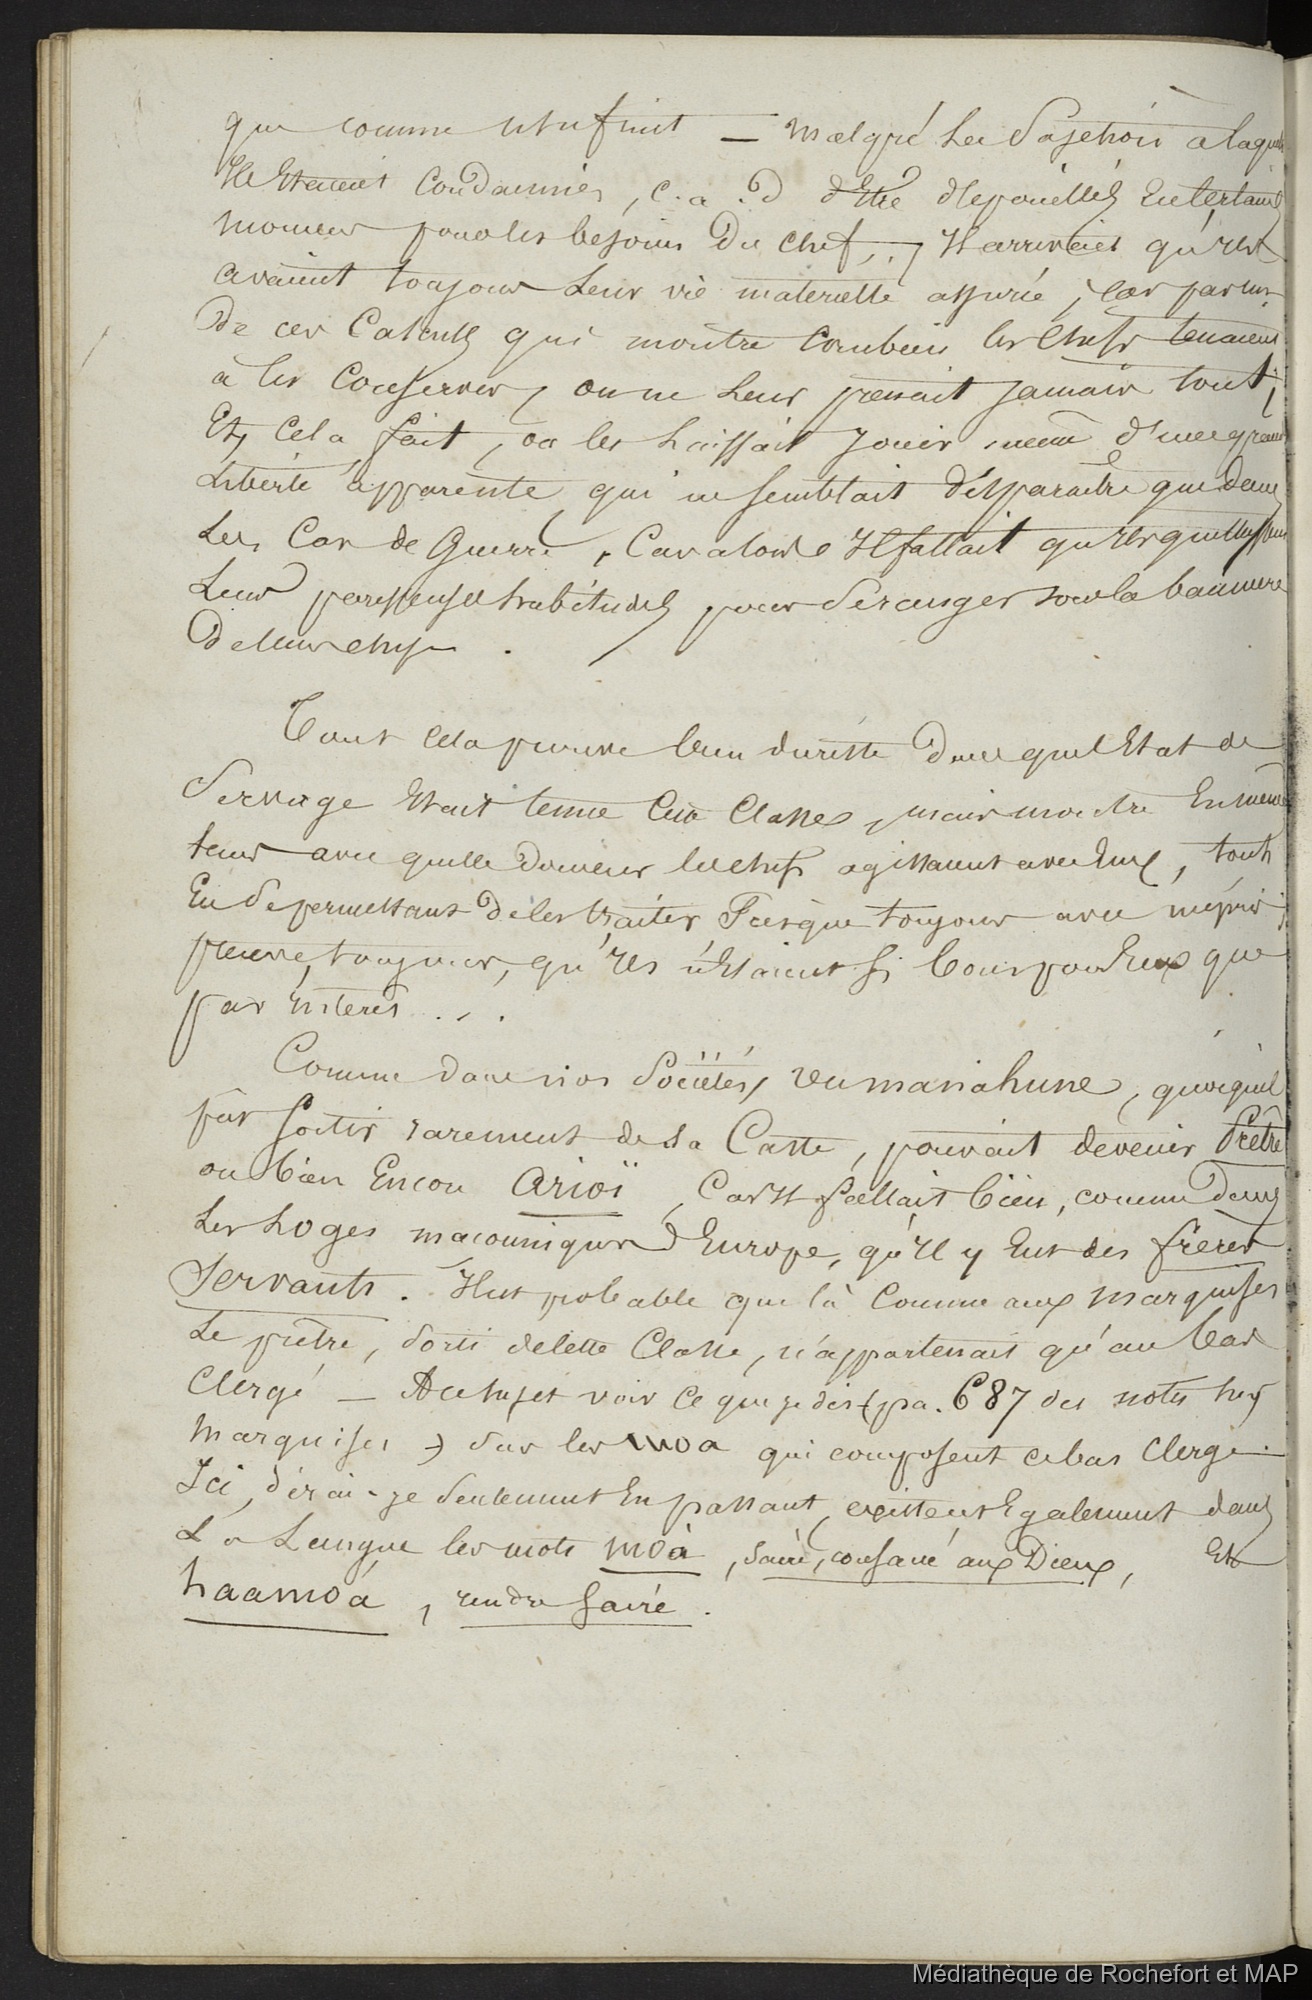 que comme usufruit — malgré la Sujetion a laquelle
Ils Etaient Condamnés, c. a. d d'Etre dépouillés En certains
momens pour les besoins Du chef, Il arrivait qu'ils
avaient toujours Leur vie materielle assurée, car par un
De ces Calculs qui montre Combien les Chefs tenaient
à les Conserver, on ne Leur prenait jamais tout;
Et, Cela fait, on les Laissait Jouir même d'une grande
Liberté apparente qui ne semblait disparaitre que dans
Les Cas de Guerre, Car alors Il fallait qu'ils quittassent
Leurs paresseuses habitudes pour Se ranger sous la bannière
De leurs chefs.
Tout cela prouve bien du reste Dans quel Etat de
Servage Etait tenue Cette Classe, mais montre En même
tems avec quelle Douceur les chefs agissaient avec Eux, tout
En Se permettant De les traiter Presque toujours avec mépris;
preuve, toujours, qu'Ils n'Etaient Si bons pour Eux que
par Interet...
Comme dans nos Sociétés, Un manahune, quoiqu'il
pût Sortir rarement de Sa Caste, pouvait devenir Prêtre
ou bien Encore Arioï, Car Il fallait bien, comme Dans
Les Loges maçonniques d'Europe, qu'Il y Eut des frères
Servants. Il est probable que là Comme aux Marquises
Le prêtre, Sorti de cette Classe, n'appartenait qu'au bas
Clergé — A ce sujet voir Ce que je dis (pa. 687 des notes
Marquises) Sur les moa qui composent ce bas Clergé.
Ici, dirai-je Seulement En passant, existent Egalement dans
La Langue les mots moà, Sacré, consacré aux Dieux, Et
haamoá, rendre Sacré.
Médiathèque de Rochefort et MAP